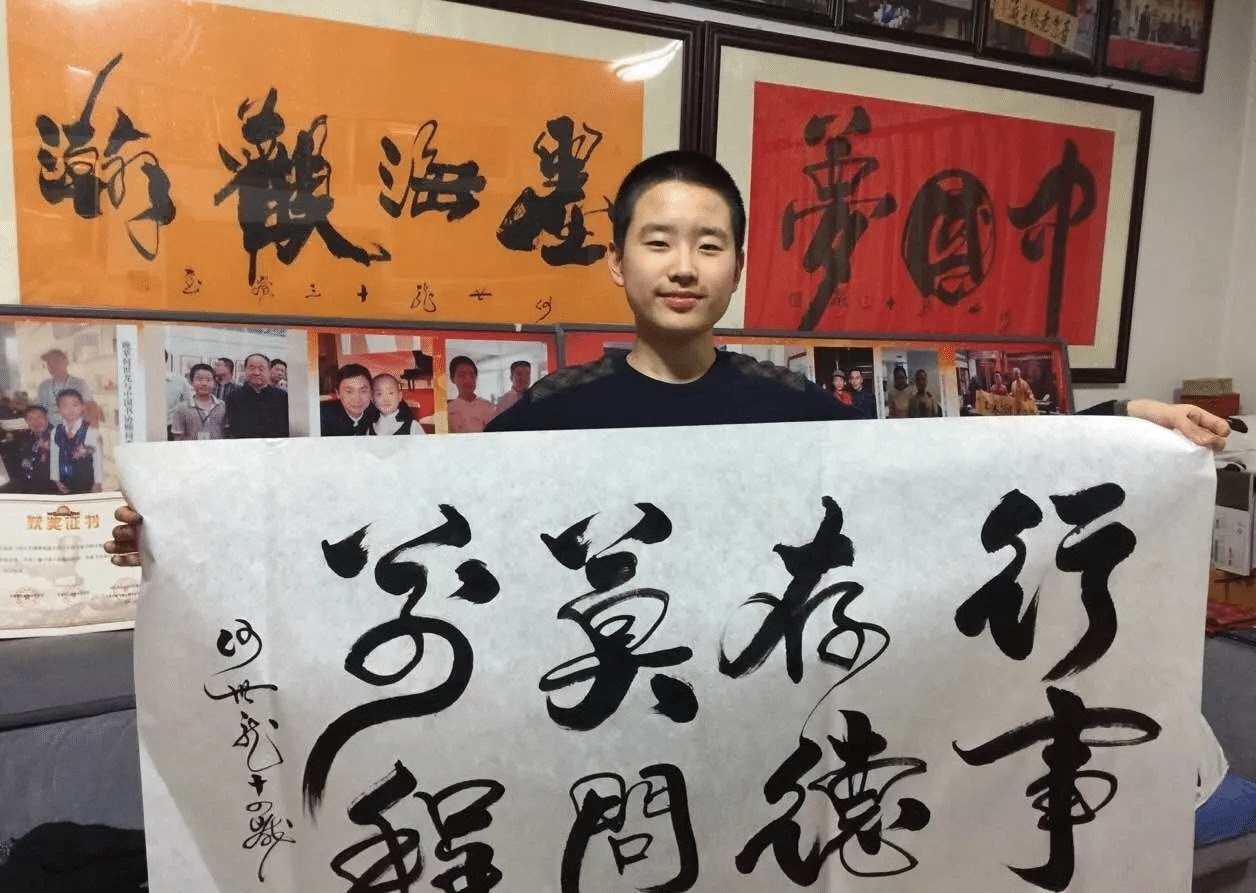 墨海觀
何世龍十三歲
中國夢
何世龍十三歲
获奖证书
行事
存德
莫問
前程
何世龍十四歲